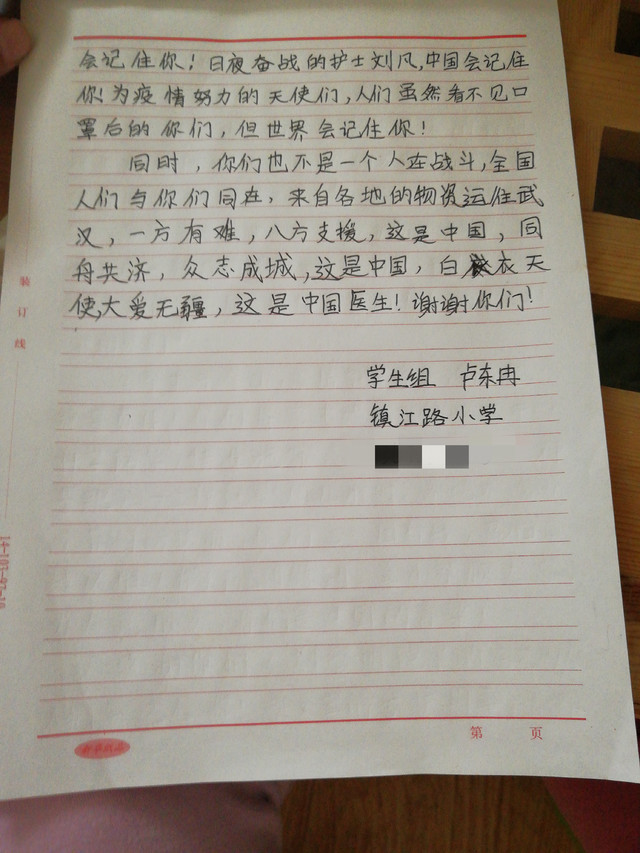 会记住你！日夜奋战的护士刘凡,中国会记住
你!为疫情努力的天使们,人们虽然看不见口
罩后的你们，但世界会记住你！
同时，你们也不是一个人在战斗,全国
人们与你们同在，来自各地的物资运往武
汉，一方有难，八方支援，这是中国，同
舟共济，众志成城,这是中国，白衣天
使,大爱无疆，这是中国医生！谢谢你们！
学生组 卢东冉
镇江路小学
装订线
第 页